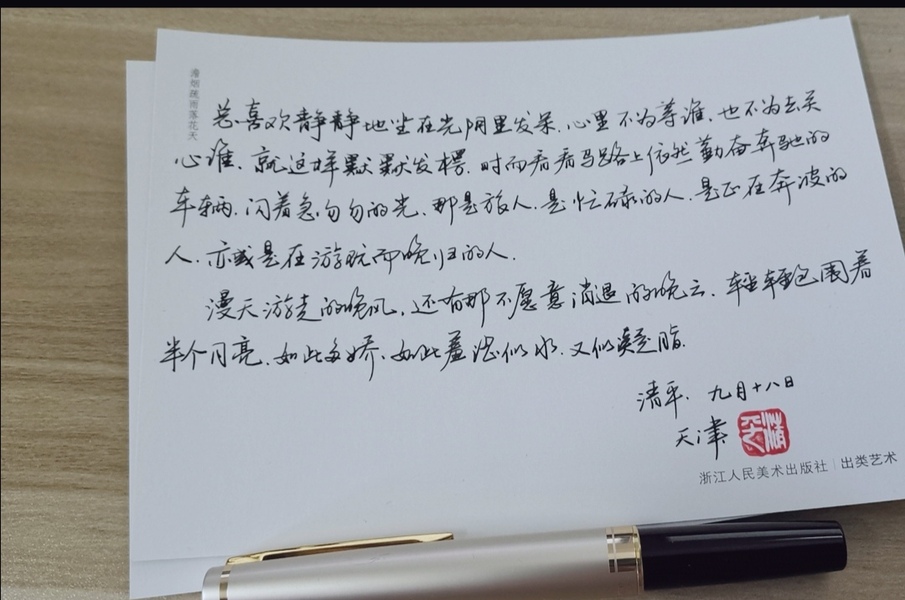 澹烟疏雨落花天
总喜欢静静地坐在光阴里发呆.心里不为等谁.也不为去关
心谁.就这样默默发楞.时而看看马路上依然勤奋奔驰的
车辆.闪着急匆匆的光.那是旅人.是忙碌的人.是正在奔波的
人.亦或是在游玩而晚归的人.
漫天游走的晚风.还有那不愿意消退的晚云.轻轻包围着
半个月亮.如此多娇.如此羞涩似水.又似凝脂.
清平.九月十八日
天津
清平
浙江人民美术出版社 | 出类艺术